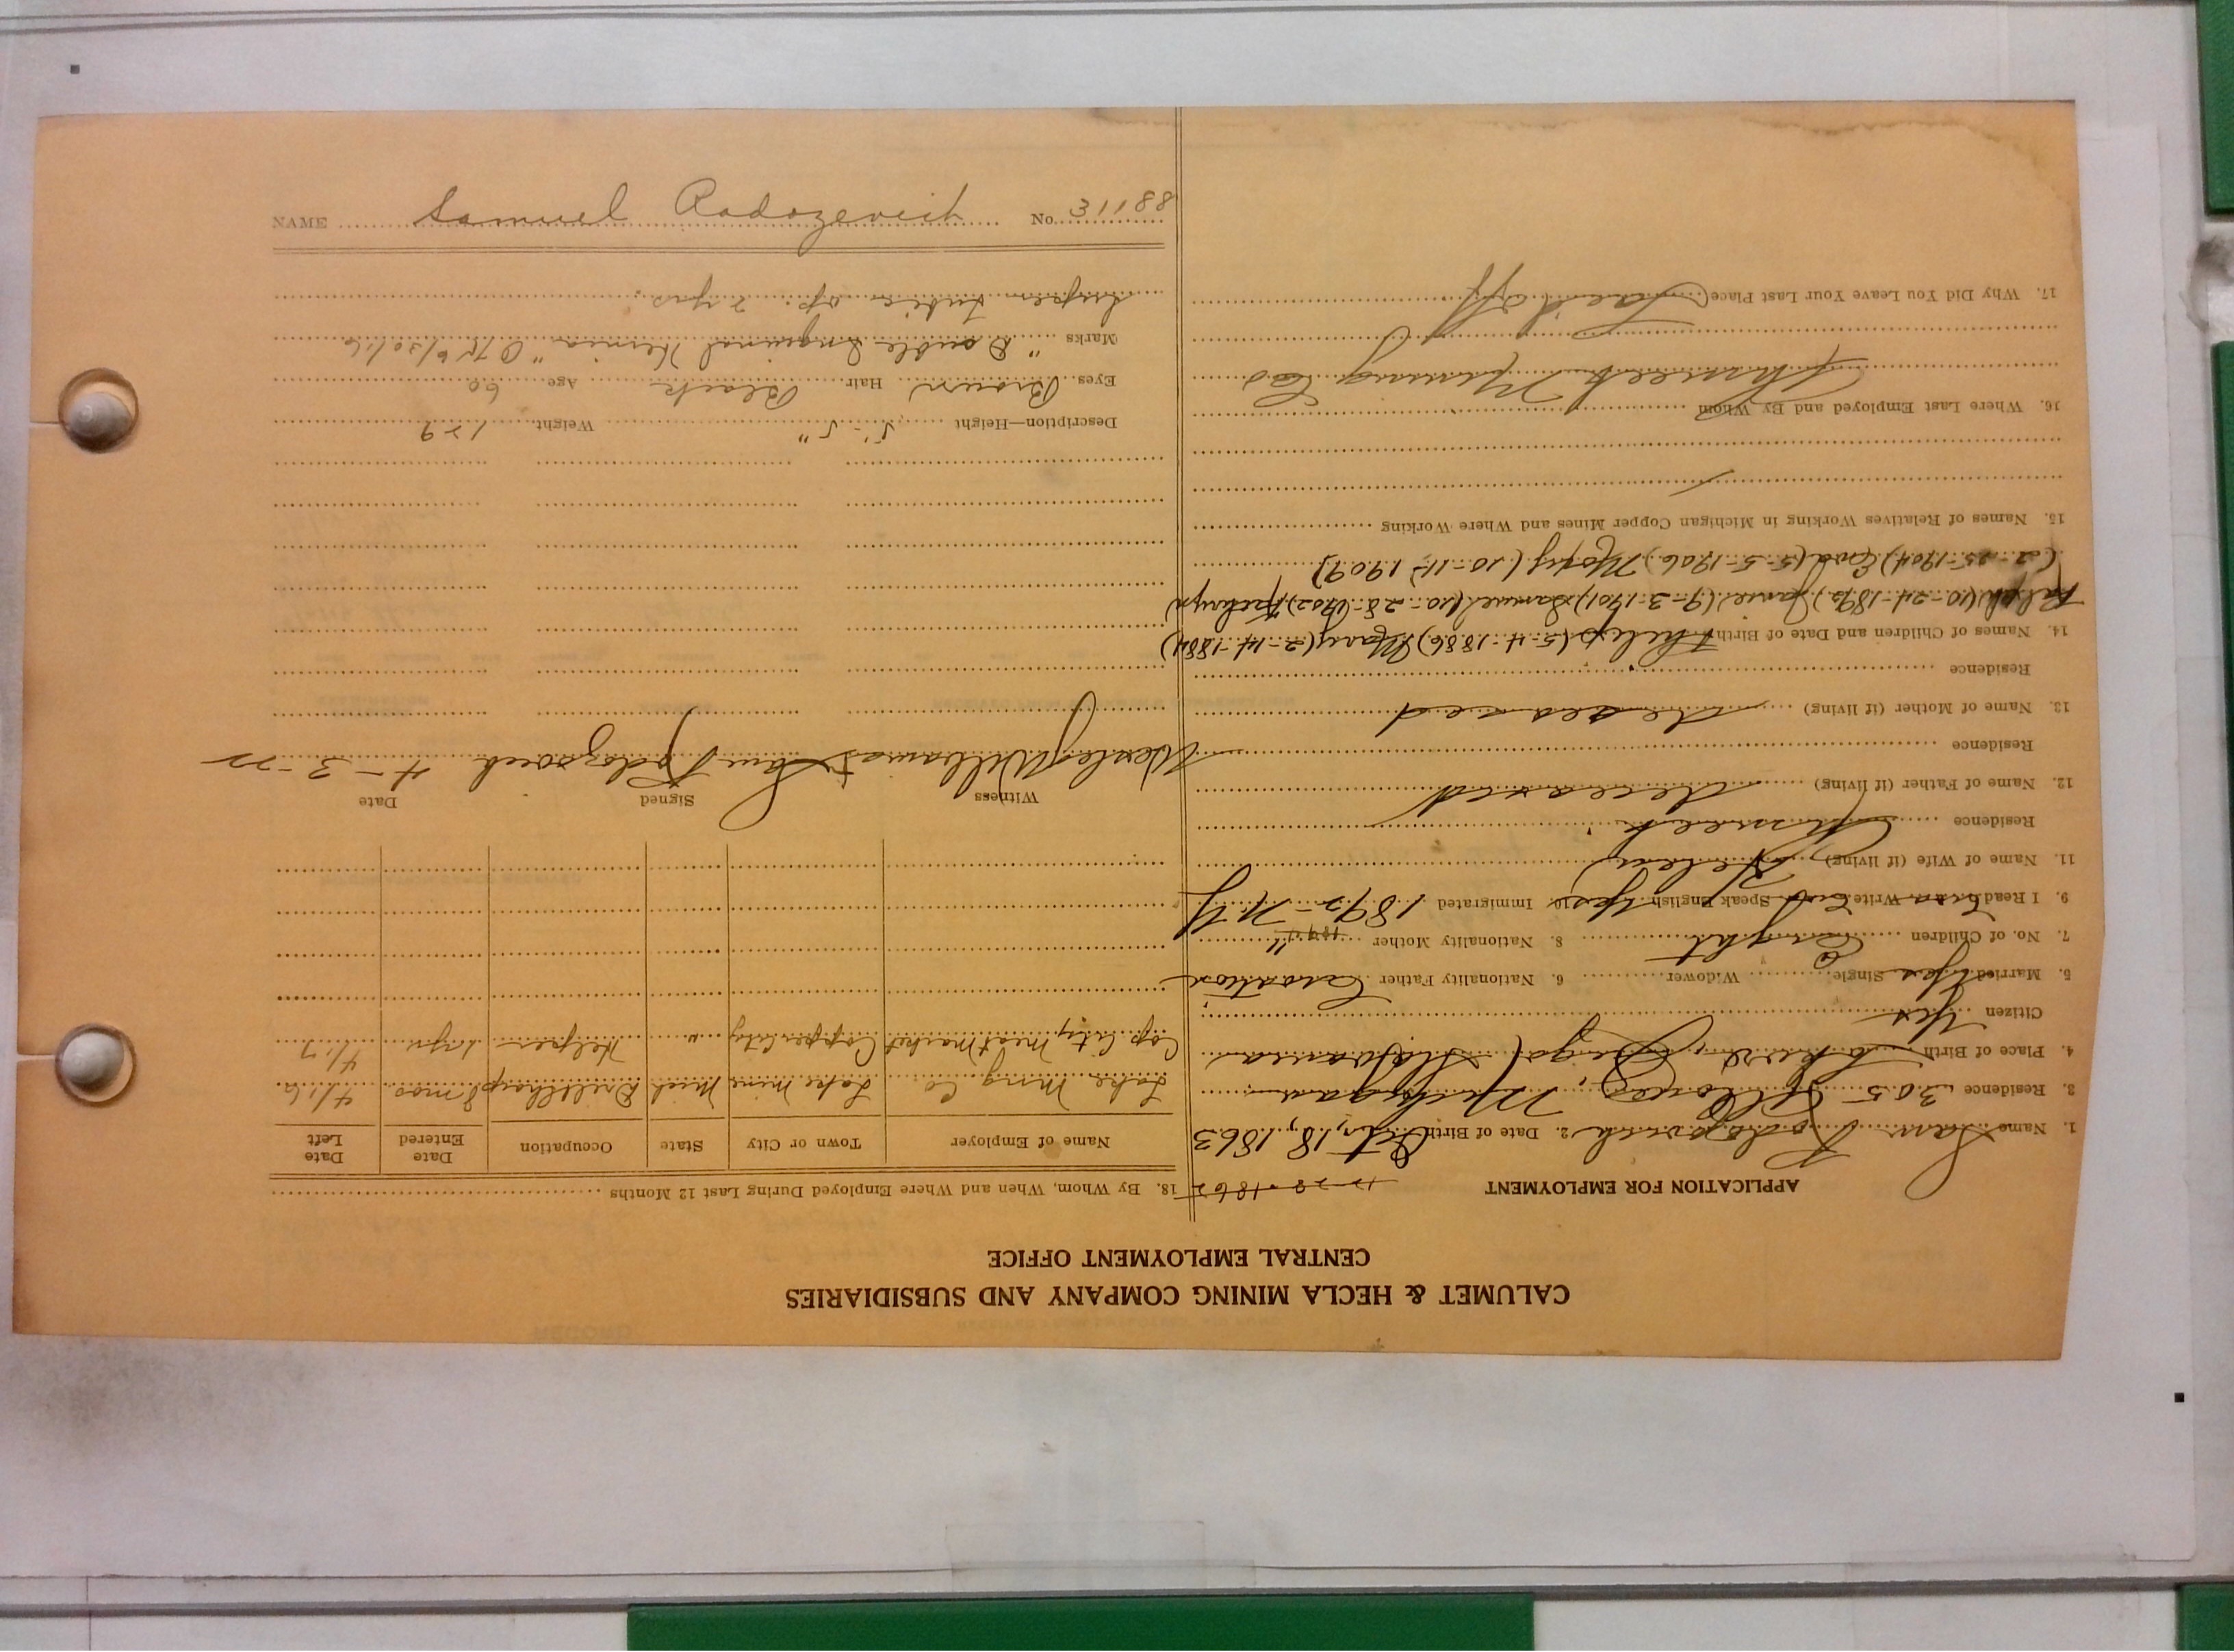 CALUMET & HECLA MINING COMPANY AND SUBSIDIARIES
CENTRAL EMPLOYMENT OFFICE
APPLICATION FOR EMPLOYMENT 12-28-1862
1. Name Sam Rodozovich 2. Date of Birth Oct, 18, 1863
3. Residence 305 Michigan
4. Place of Birth
Citizen Yes
5. Married Yes Single Widower 6. Nationality Father Croation
7. No. of Children Eight 8. Nationality Mother "
1894
9. I Read Write Speak English Yes 10. Immigrated 1892 - N.Y
11. Name of Wife (if living) Helen
Residence Ahmeek
12. Name of Father (if living) deceased
Residence
13. Name of Mother (if living) deceased
Residence
14. Names of Children and Date of Birth Philip (5-4-1886) Mary (2-14-1884)
Ralph (10-24-1892) (9-3-1901) Samuel (10-28-1902)
(2-25-1904) (5-5-1906) (10-11-1909)
15. Names of Relatives Working in Michigan Copper Mines and Where Working
16. Where Last Employed and By Whom
Ahmeek Mining Co
17. Why Did You Leave Your Last Place Laid off
18. By Whom, When and Where Employed During Last 12 Months
Name of Employer Town or City State Occupation Date Entered Date Left
Lake Ming. Co Lake Mine Mich Drill Sharp 8 mos 4/16
Cop. City Meat Market Copper City " Helper 1 yr 4/17
Witness Signed Date
Wesley Williams Sam Rodozovich 4-3-22
Description—Height 5'-5" Weight 129
Eyes Brown Hair Black Age 60
Marks "Double Inguinal Hernia" O/K 6/30/16
Super Pubic op. 2 yrs
NAME Samuel Radozevich No. 31188